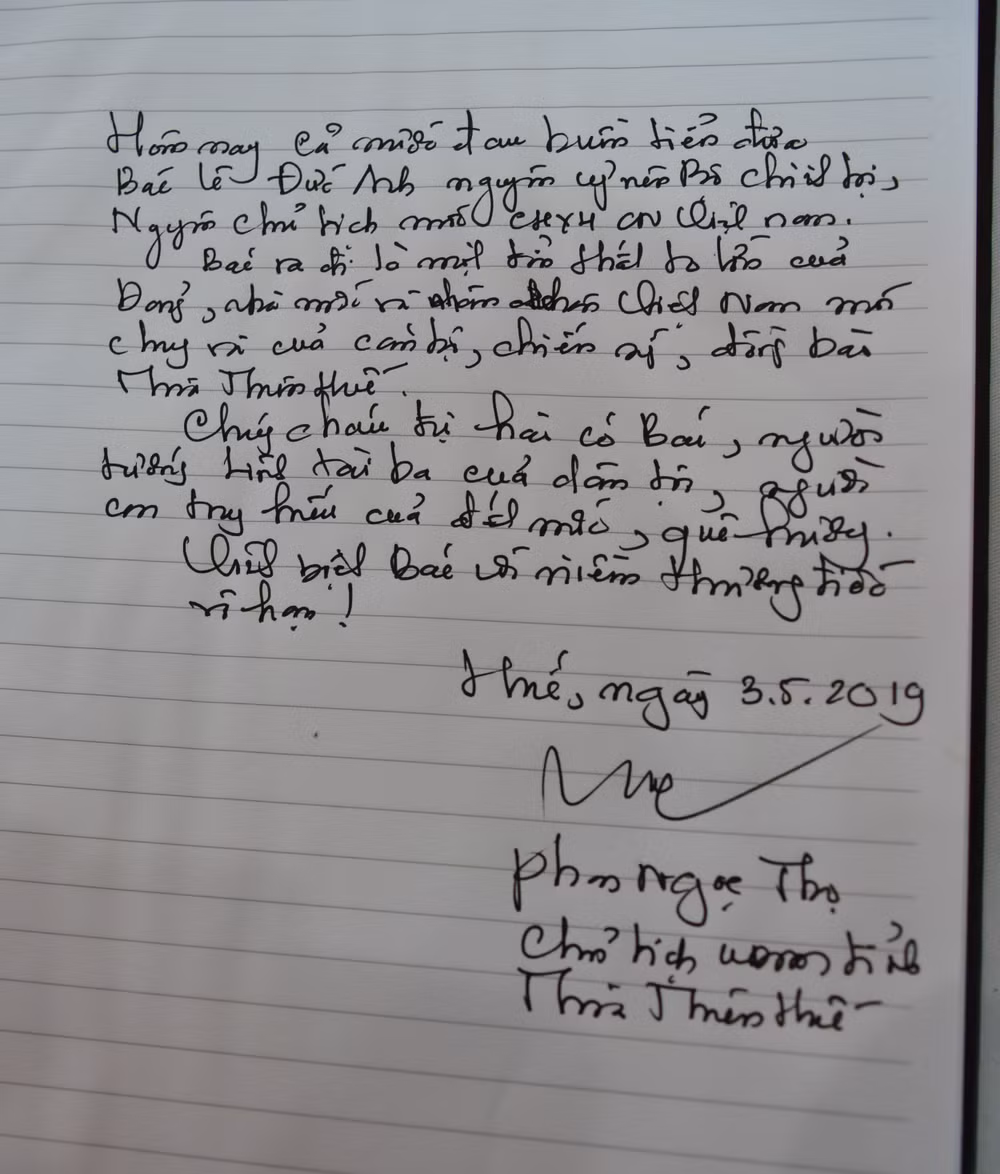 Hôm nay cả nước đau buồn tiễn đưa
Bác Lê Đức Anh nguyên ủy viên Bộ chính trị,
Nguyên chủ tịch nước CHXHCN Việt Nam.
Bác ra đi là một tổn thất to lớn của
Đảng, nhà nước và nhân dân Việt Nam nói
chung và của cán bộ, chiến sỹ, đồng bào
Thừa Thiên Huế.
Chúng cháu tự hào có Bác, người
tướng lĩnh tài ba của dân tộc, người
con trung hiếu của đất nước, quê hương.
Vĩnh biệt Bác với niềm thương tiếc
vô hạn!
Huế, ngày 3.5.2019
Phan Ngọc Thọ
Chủ tịch UBND tỉnh
Thừa Thiên Huế